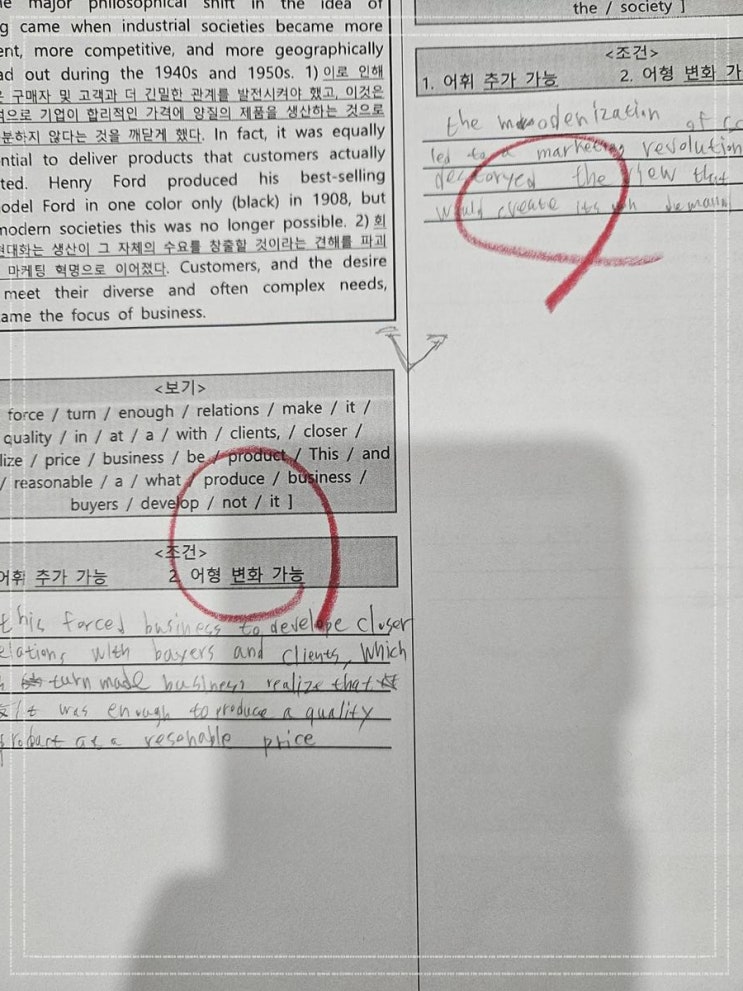 major philosophical shift in the idea of
came when industrial societies became more
more competitive, and more geographically
out during the 1940s and 1950s. 1) 이로 인해
구매자 및 고객과 더 긴밀한 관계를 발전시켜야 했고, 이것은
기업이 합리적인 가격에 양질의 제품을 생산하는 것으로
않다는 것을 깨닫게 했다. In fact, it was equally
to deliver products that customers actually
Henry Ford produced his best-selling
Ford in one color only (black) in 1908, but
modern societies this was no longer possible. 2)
생산이 그 자체의 수요를 창출할 것이라는 견해를 파괴
마케팅 혁명으로 이어졌다. Customers, and the desire
meet their diverse and often complex needs,
the focus of business.
<보기>
force / turn / enough / relations / make / it /
quality / in / at / a / with / clients, / closer /
/ price / business / be / product / This / and
/ reasonable / a / what / produce / business /
buyers / develop / not / it ]
<조건>
추가 가능 2. 어형 변화 가능
this forced business to develope closer
with bayers and clients, which
turn made business realize that
it was enough to produce a quality
at a resonable price
the / society ]
<조건>
1. 어휘 추가 가능 2. 어형 변화
the modenization of
led to a marketing revolution
the view that
would create its